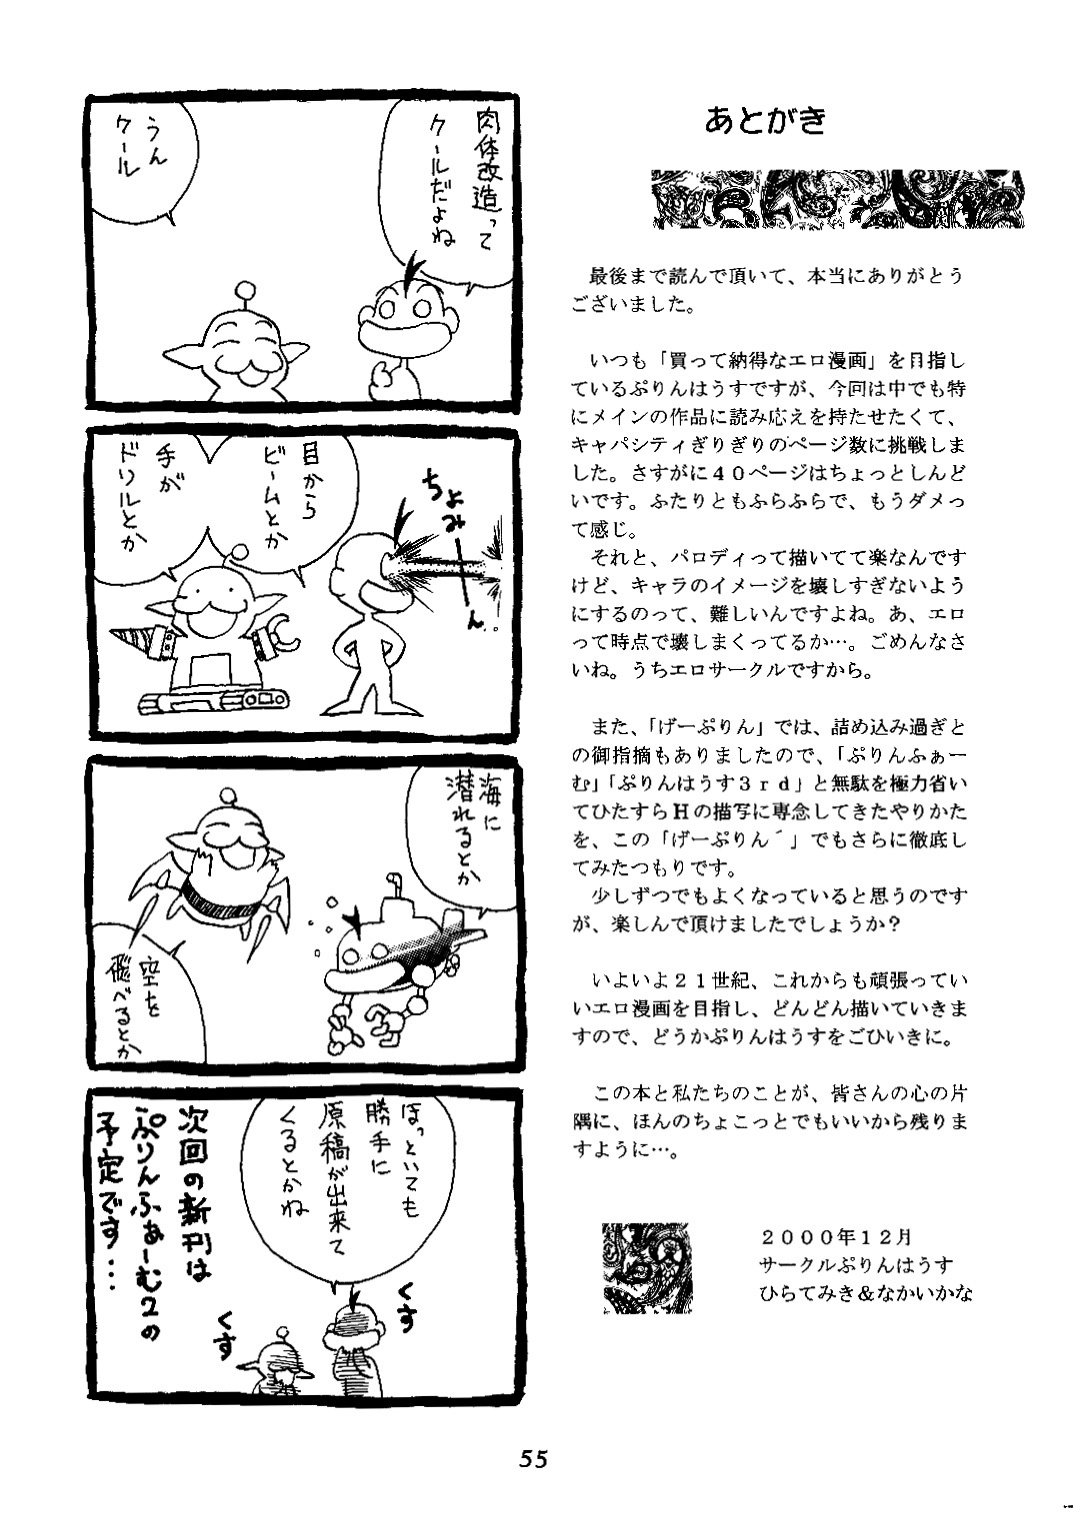 肉体改造って
クールだよね
うん
クール
目から
ビームとか
手が
ドリルとか
ちょ
み
ん..
海に
潜れるとか
空を
飛べるとか
ほっといても
勝手に
原稿が出来て
くるとかね
くす
くす
次回の新刊は
ぷりんふぁーむ2の
予定です・・・
あとがき
最後まで読んで頂いて、本当にありがとう
ございました。
いつも「買って納得なエロ漫画」を目指し
ているぷりんはうすですが、今回は中でも特
にメインの作品に読み応えを持たせたくて、
キャパシティぎりぎりのページ数に挑戦しま
した。さすがに４０ページはちょっとしんど
いです。ふたりともふらふらで、もうダメっ
て感じ。
それと、パロディって描いてて楽なんです
けど、キャラのイメージを壊しすぎないよう
にするのって、難しいんですよね。あ、エロ
って時点で壊しまくってるか…。ごめんなさ
いね。うちエロサークルですから。
また、「げーぷりん」では、詰め込み過ぎと
の御指摘もありましたので、「ぷりんふぁー
む」「ぷりんはうす３ｒｄ」と無駄を極力省い
てひたすらＨの描写に専念してきたやりかた
を、この「げーぷりん´」でもさらに徹底し
てみたつもりです。
少しずつでもよくなっていると思うのです
が、楽しんで頂けましたでしょうか？
いよいよ２１世紀、これからも頑張ってい
いエロ漫画を目指し、どんどん描いていきま
すので、どうかぷりんはうすをごひいきに。
この本と私たちのことが、皆さんの心の片
隅に、ほんのちょこっとでもいいから残りま
すように…。
２０００年１２月
サークルぷりんはうす
ひらてみき＆なかいかな
55